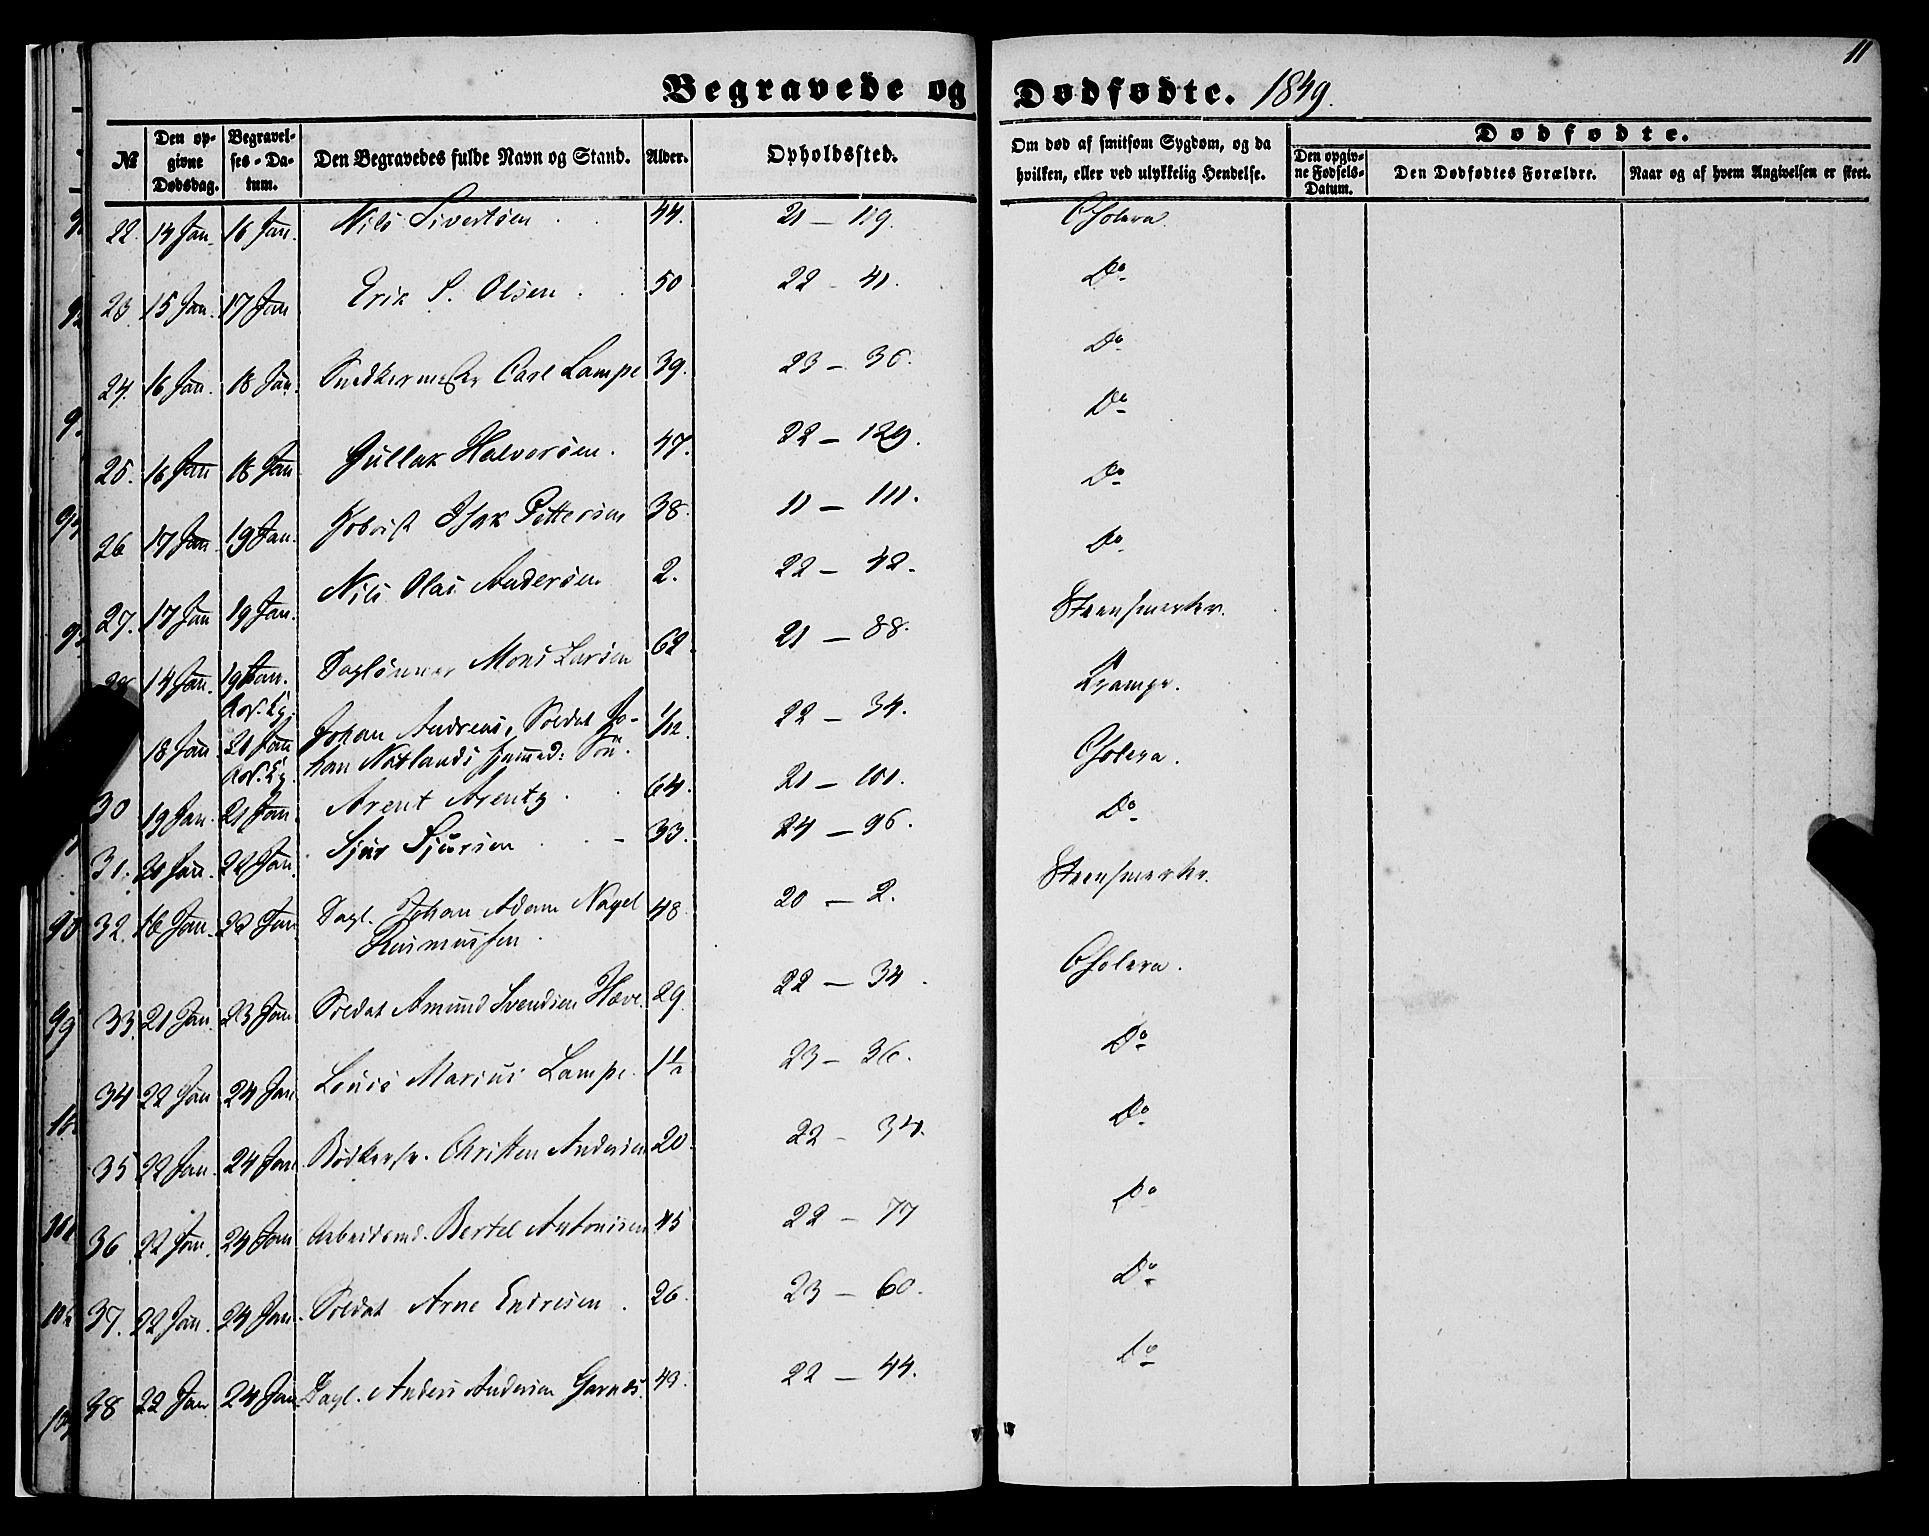 11
Begravede og Dødfødte. 1849.
№ Den opgivne Dødsdag. Begravelses-Datum. Den Begravedes fulde Navn og Stand. Alder. Opholdssted. Om død af smitsom Sygdom, og da hvilken, eller ved ulykkelig Hendelse. Dødfødte. Den opgivne Fødsels-Datum. Den Dødfødtes Forældre. Naar og af hvem Angivelsen er skeet.
22. 14 Jan. 16 Jan. Nils Sivertsen 44. 21 — 119. Cholera.
23. 15 Jan. 17 Jan Eric S. Olsen 50 22 - 41. Do
24. 16 Jan. 18 Jan. Snedkermester Carl Lampe 39. 23 — 36. Do
25. 16 Jan 18 Jan Gullak Halvorsen. 47. 22 — 129. Do
26 17 Jan 19 Jan. Isak Pettersen 38. 11 — 111. Do
27. 17 Jan 19 Jan. Nils Olai Andersen 2. 22 — 42. Do
14 Jan. 19 Jan. Daglönner Mons Larsen 62 21 — 88. Steensmerter.
18 Jan 21 Jan Johan Andreas, Soldat Jo- 1/12. 22 — 34. Krampe.
han Natlands Søn.
30 19 Jan. 21 Jan. Arent Arentz 64. 21 — 101. Cholera.
31. 20 Jan. 22 Jan. Sjur Sjursen 33. 24 — 96. Do
32. 16 Jan. 23 Jan. Dagl. Johan Adam Nagel 48 20 — 2. Steensmerter.
Rasmussen.
33. 21 Jan. 23 Jan. Soldat Amund Svendsen Hæve. 29. 22 — 34. Cholera.
34 22 Jan 24 Jan Louis Marius Lampe. 1½ 23 — 36. Do
35 22 Jan. 24 Jan Bødkersv. Christen Andersen 20. 22 - 34. Do
36. 22 Jan. 24 Jan Arbeidsmd. Bertel Antonisen 45 22 — 77 Do
37. 22 Jan. 24 Jan. Soldat Arne Endresen. 26. 23 — 60. Do
38 22 Jan 24 Jan. Dagl. Anders Andersen Garnæs. 43. 22 — 44. Do